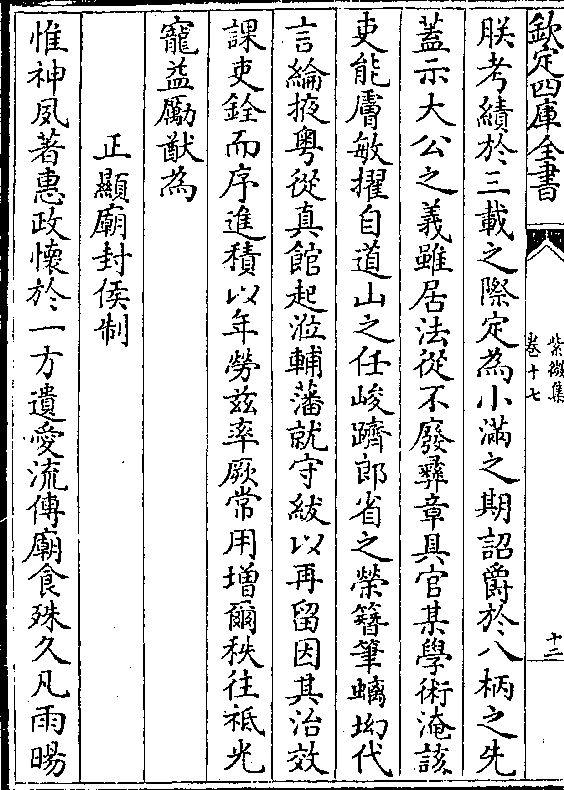 欽定四庫全書
紫微集
卷十七
十二
朕考績於三載之際定為小滿之期詔爵於八柄之先
蓋示大公之義雖居法從不廢彛章具官某學術淹該
吏能膚敏擢自道山之任峻躋郎省之榮簪筆螭坳代
言綸掖粤從真館起涖輔藩就守紱以再留因其治效
課吏銓而序進積以年勞兹率厥常用增爾秩往祗光
寵益勵猷為
正顯廟封侯制
惟神夙著惠政懷於一方遺愛流傳廟食殊久凡雨暘